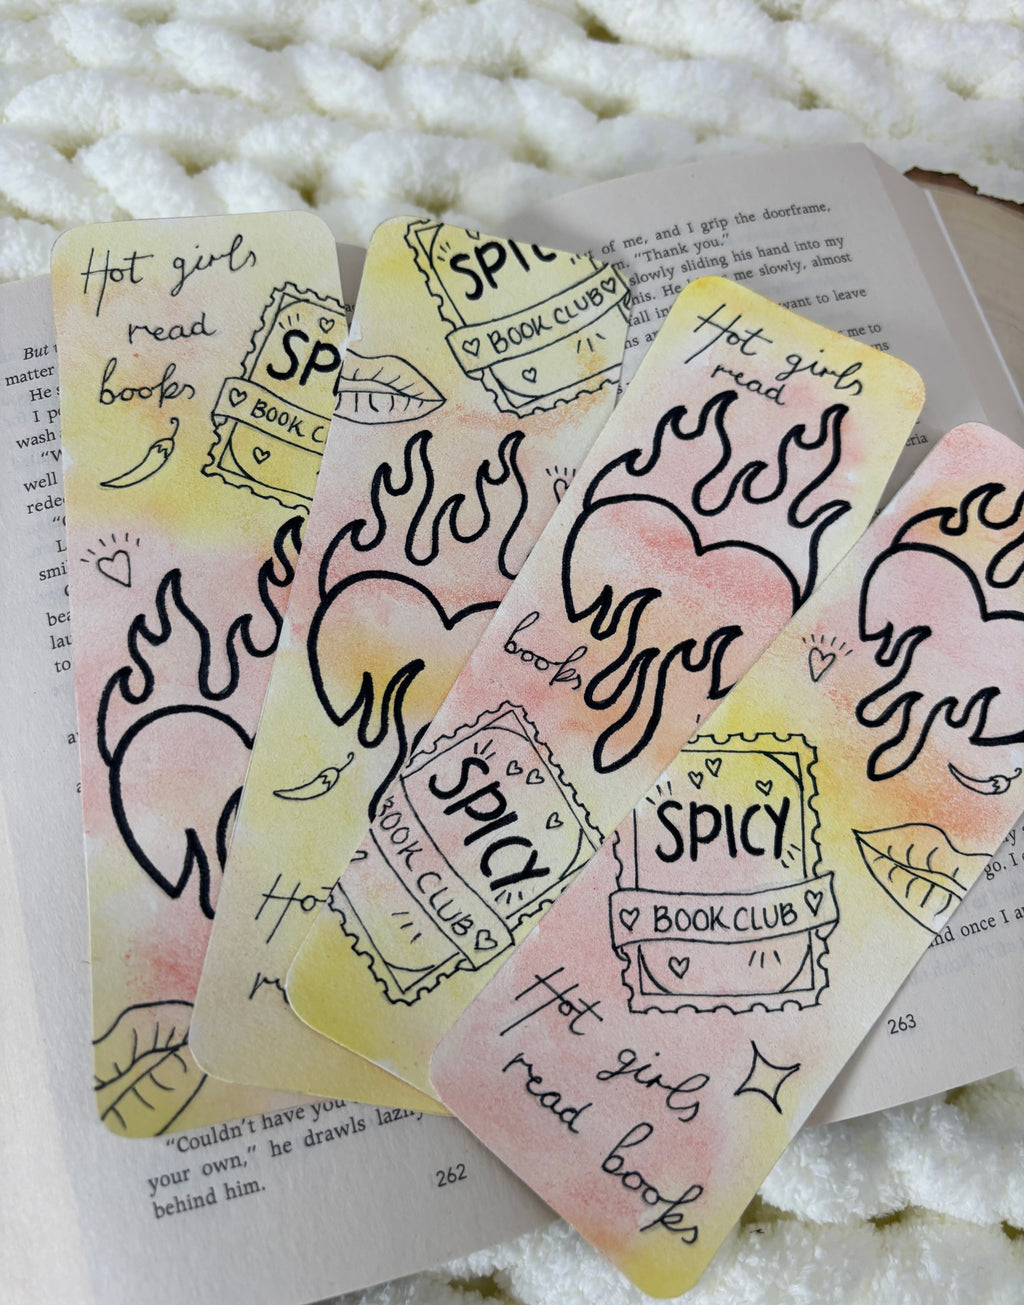 Hot girls
read
books
SP
BOOK C
SPIC
BOOK CLUB
Ho
r
Hot girls
read
books
SPICY
BOOK CLUB
SPICY
BOOK CLUB
Hot
girls
read
books
But
matter
He s
I p
wash
"W
well
rede
smi
bea
lau
to
of me, and I grip the doorframe,
"Thank you."
slowly sliding his hand into my
his. He me slowly, almost
fall in
want to leave
me to
go. I
and once I a
263
"Couldn't have you
your own," he drawls lazily
behind him.
262